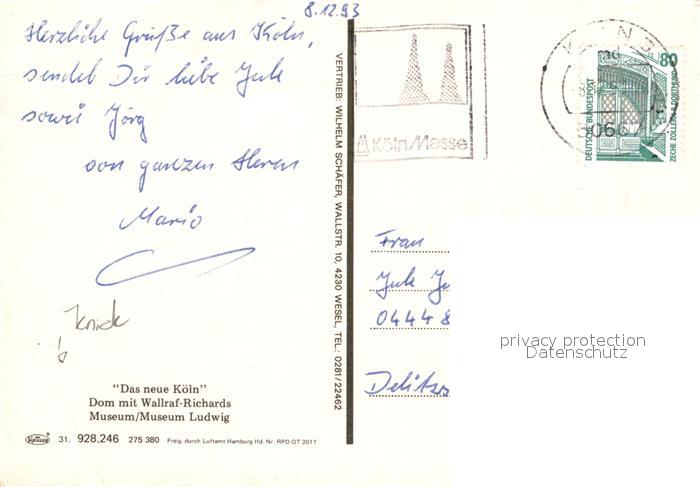 8.12.93
Herzliche Grüße aus Köln,
sendet Dir liebe Jule
sowie Jörg
von ganzen Herzen
Mario
Knick
"Das neue Köln"
Dom mit Wallraf-Richards
Museum/Museum Ludwig
31. 928.246 275 380 Freig. durch Luftamt Hamburg lfd. Nr. RPD OT 2017
VERTRIEB: WILHELM SCHÄFER, WALLSTR. 10, 4230 WESEL, TEL.: 0281/22462
Köln/Messe
KÖLN 3
5066
80
DEUTSCHE BUNDESPOST
ZECHE ZOLLERN II DORTMUND
Frau
Jule
04448
Delitzs
privacy protection
Datenschutz